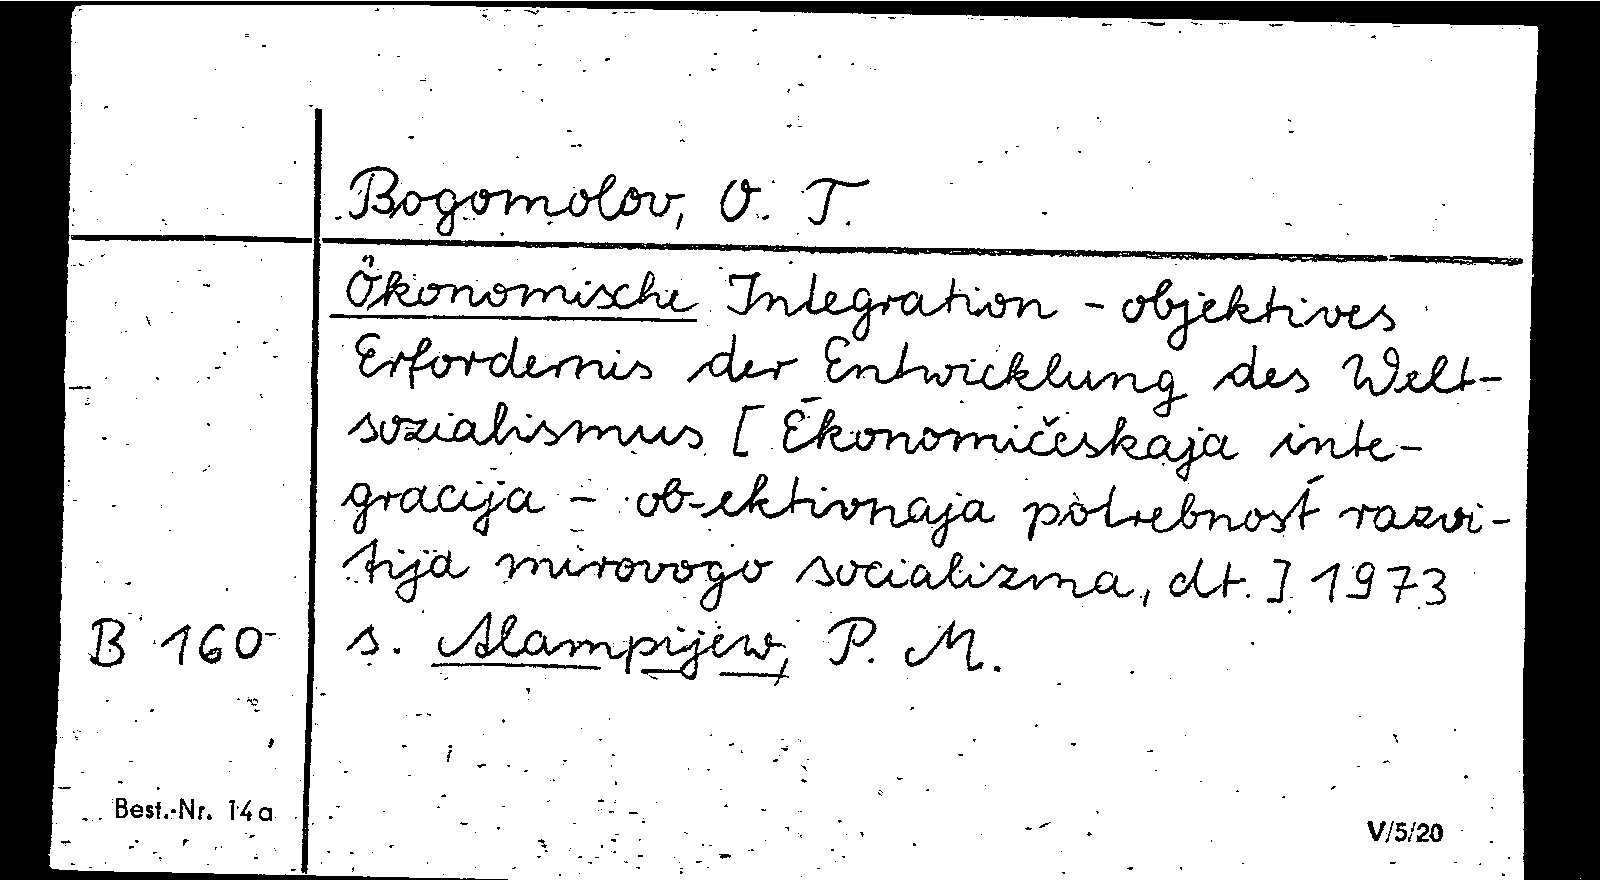 Bogomolov, O. T.
Ökonomische Integration - objektives
Erfordernis der Entwicklung des Welt-
sozialismus [Ėkonomičeskaja inte-
gracija - ob-ektivnaja potrebnost́ razvi-
tija mirovogo socializma, dt.] 1973
B 160 s. Alampijew, P. M.
Best.-Nr. 14a
V/5/20